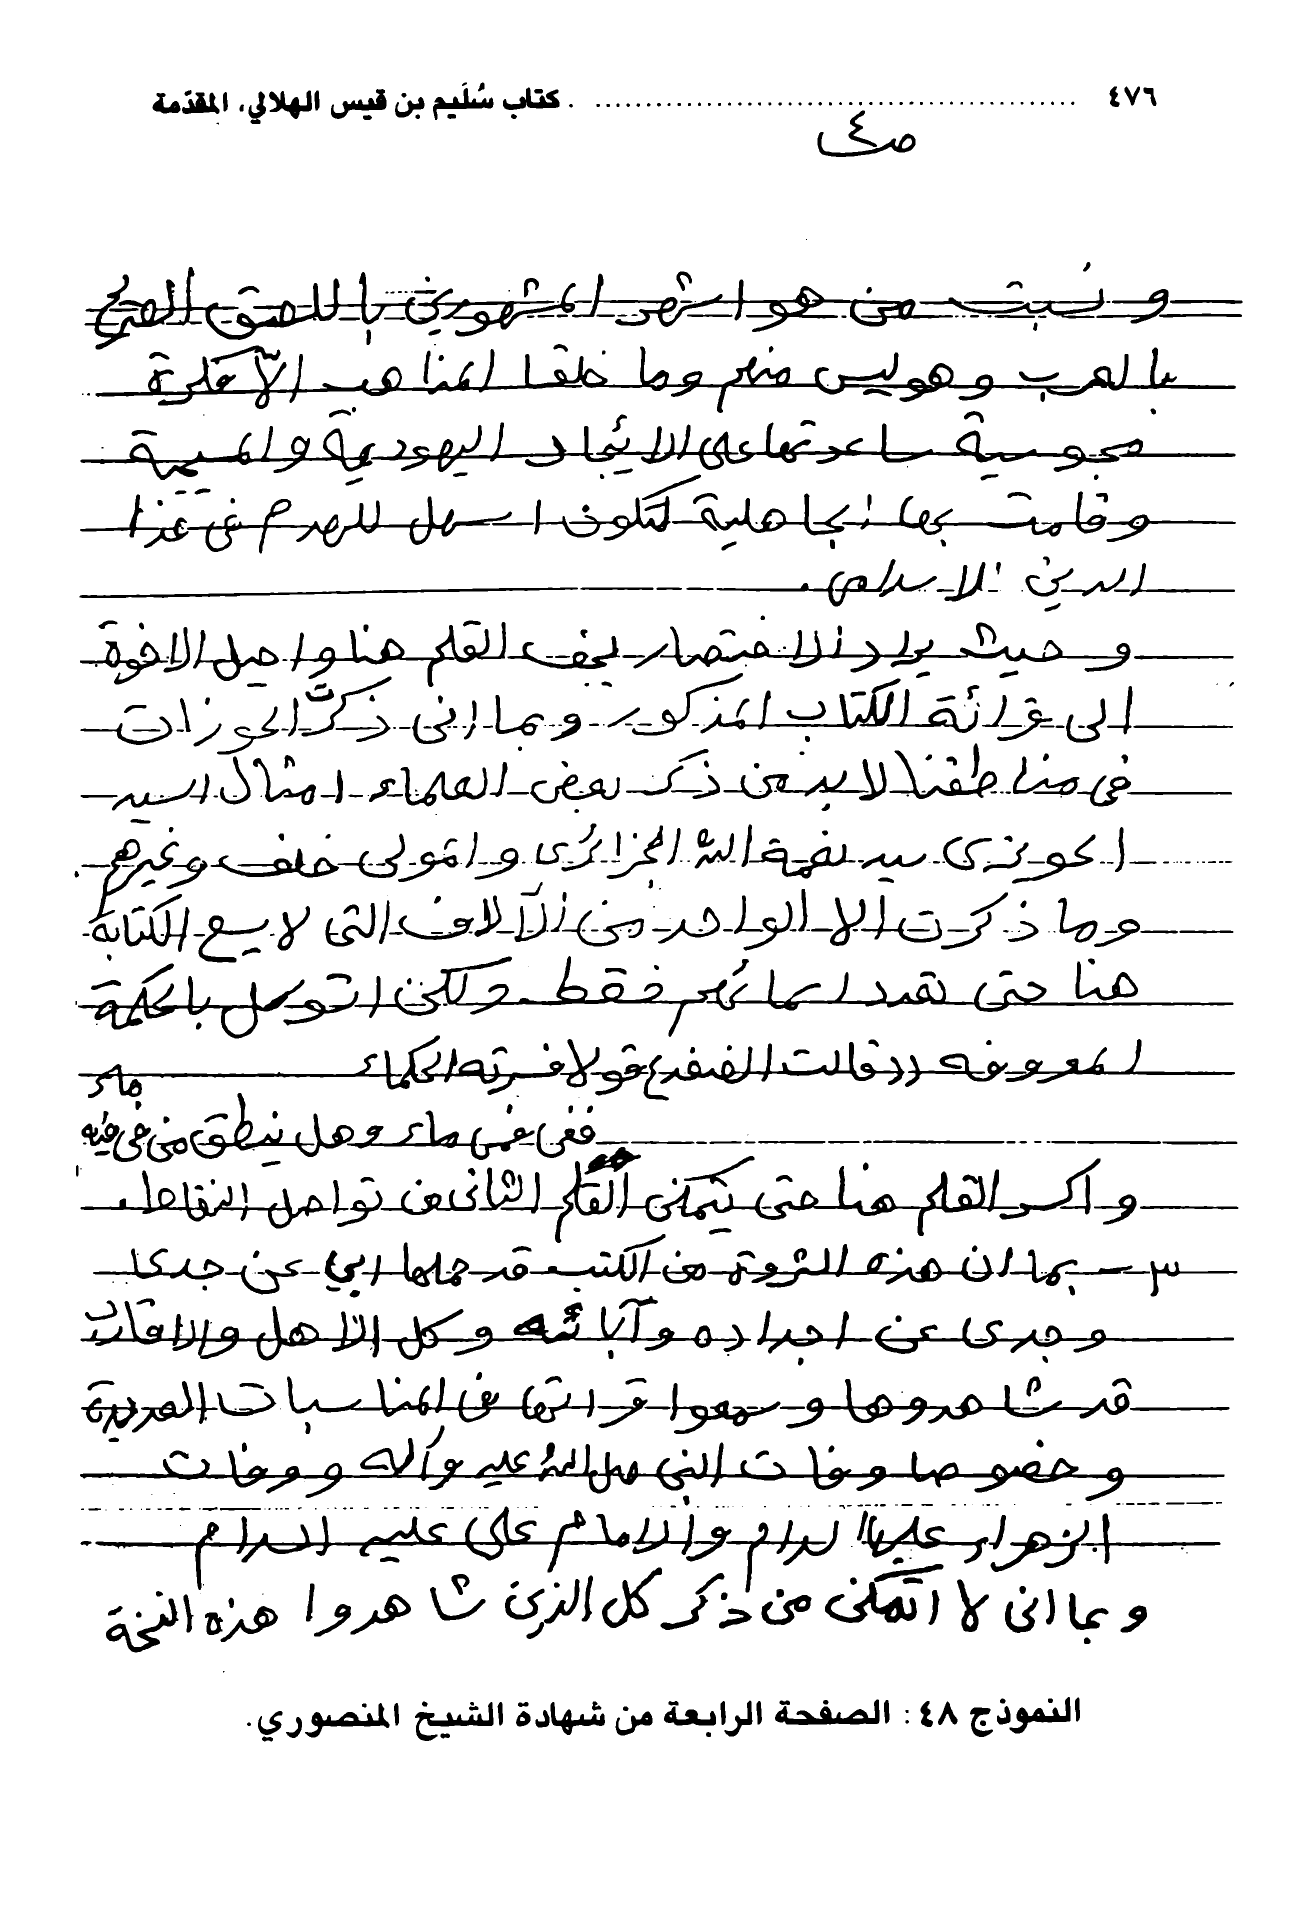 ٤٧٦ ........................ كتاب سُلَيم بن قيس الهلالي، المقدّمة
ص٤
ونسبت من هو اشهر المشهورين باللصق الصريح
بالعرب وهو ليس منهم وما خلقا المذاهب الا فكرة
مجوسية ساعدتها على الايجاد اليهودية والمسيحية
وقامت بها الجاهلية لتكون اسهل للهدم في هذا
الدين الاسلامي.
وحيث يراد الاختصار يجف القلم هنا واحيل الاخوة
الى قرائة الكتاب المذكور وبما اني ذكرت الحوزات
في مناطقنا لابد من ذكر بعض العلماء امثال السيد
الحويزى سيد نعمة الله الجزائرى والمولى خلف وغيرهم
وما ذكرت الا الواحد من الآلاف التى لا يسع الكتابة
هنا حتى تعدد اسمائهم فقط. ولكن اتوكل بالحكمة
المعروفه ((قالت الضفدع قولا فسرته الحكماء
ففي فمي ماء وهل ينطق من في فيه ماء
واكسر القلم هنا حتى يتمكن القلم الثانى من تواصل النقاط.
٣ – بما ان هذه الثروة من الكتب قد حملها ابي عن جدى
وجدى عن اجداده وآبائه وكل الاهل والاقارب
قد شاهدوها وسمعوا قرائتها في المناسبات العديدة
وخصوصا وفات النبي صلى الله عليه وآله ووفات
الزهراء عليها السلام والامام على عليه السلام
وبما اني لا اتمكن من ذكر كل الذين شاهدوا هذه النسخة
النموذج ٤٨: الصفحة الرابعة من شهادة الشيخ المنصوري.